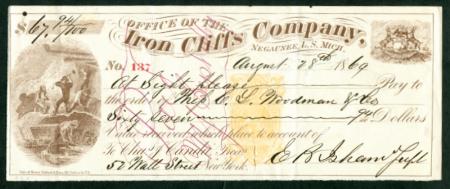 $67.94/100
OFFICE OF THE
Iron Cliffs Company,
NEGAUNEE, L. S. MICH.
No. 137 August 28th 1869
At Sight please Pay to
the order of C. G. Woodman & Co
Sixty Seven 94/100 Dollars
Value received which place to account of
To Chas. J. Canda, Treas
52 Wall Street New York.